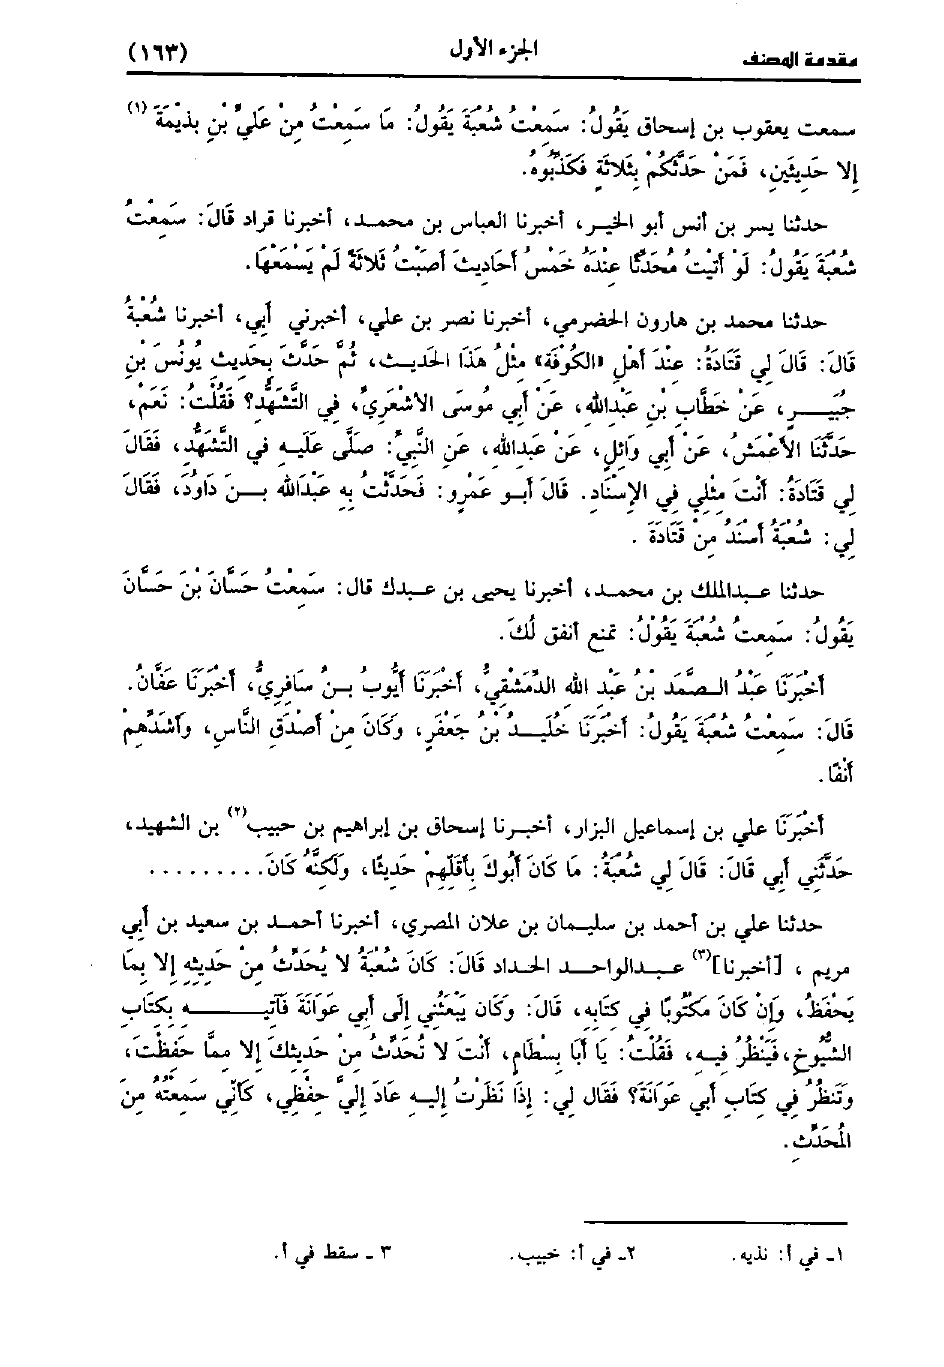 مقدمة المصنف الجزء الأول (١٦٣)
سمعت يعقوب بن إسحاق يَقُولُ: سَمِعْتُ شُعْبَةَ يَقُولُ: مَا سَمِعْتُ مِن عَلَيِّ بْنِ بذيْمَةَ (١)
إلا حَدِيثَينِ، فَمَنْ حَدَّثَكُمْ بِثَلاثَةٍ فَكَذِّبُوهُ.
حدثنا يسر بن أنس أبو الخير، أخبرنا العباس بن محمد، أخبرنا قراد قَالَ: سَمِعْتُ
شُعْبَةَ يَقُولُ: لَو أتَيتُ مُحَدِّثًا عِنْدَهُ خَمسُ أحَادِيثَ أصَبْتُ ثَلاثَةً لَمْ يَسْمَعْهَا.
حدثنا محمد بن هارون الحضرمي، أخبرنا نصر بن علي، أخبرني أَبي، أخبرنا شُعْبَةُ
قَالَ: قَالَ لِي قَتَادَةُ: عِنْدَ أهْلِ «الكُوفَةِ» مِثْلُ هَذَا الحَدِيثِ، ثُمَّ حَدَّثَ بِحَدِيثِ يُونُسَ بْنِ
جُبَيـــرٍ، عَنْ حَطَّابِ بْنِ عَبدِاللهِ، عَنْ أَبِي مُوسَى الأشْعَرِيِّ، فِي التَّشَهُّدِ؟ فَقُلْتُ: نَعَمْ،
حَدَّثَنَا الأعْمَشُ، عَنْ أَبي وَائِلٍ، عَنْ عَبدِاللهِ، عَنِ النَّبِيِّ: صلَّى عَلَيهِ فِي التَّشَهُّدِ، فَقَالَ
لِي قَتَادَةُ: أنْتَ مِثْلِي فِي الإسْنَادِ. قَالَ أبـو عَمْرٍو: فَحَدَّثْتُ بِهِ عَبْدَاللهِ بـن دَاوُدَ، فَقَالَ
لِي: شُعْبَةُ أسْنَدُ مِنْ قَتَادَةَ .
حدثنا عـبدالملك بن محمـد، أخبرنا يحيى بن عـبدك قال: سَمِعْتُ حَسَّانَ بْنَ حَسَّانَ
يَقُولُ: سَمِعتُ شُعْبَةَ يَقُولُ: تمنع أنفق لَكَ.
أَخْبَرَنَا عَبْدُ الـصَّمَدِ بْنُ عَبْدِ اللهِ الدِّمَشْقِيُّ، أَخْبَرَنَا أيُّوبُ بـنُ سَافِرِيٍّ، أَخْبَرَنَا عَفَّانُ.
قَالَ: سَمِعْتُ شُعْبَةَ يَقُولُ: أَخْبَرَنَا خُلَيـدُ بْنُ جَعْفَرٍ، وَكَانَ مِنْ أصْدَقِ النَّاسِ، وَأشَدِّهِمْ
أَنْفًا.
أَخْبَرَنَا علي بن إسماعيل البزار، أخبـرنا إسحاق بن إبراهيم بن حبيب(٢) بن الشهيد،
حَدَّثَنِي أبي قَالَ: قَالَ لِي شُعْبَةُ: مَا كَانَ أبُوكَ بِأقَلِّهِمْ حَدِيثًا، وَلَكِنَّهُ كَانَ.........
حدثنا علي بن أحمد بن سليمان بن علان المصري، أخبرنا أحمـد بن سعيد بن أبي
مريم ، [أخبرنا](٣) عـبدالواحـد الحداد قَالَ: كَانَ شُعْبَةُ لا يُحَدِّثُ مِنْ حَدِيثِهِ إلا بِمَا
يَحْفَظُ، وَإنْ كَانَ مَكتُوبًا فِي كِتَابِهِ، قَالَ: وَكَان يَبْعَثُنِي إلَى أبِي عَوَانَةَ فَآتِيــــهِ بِكتَابِ
الشُّيُوخِ، فَيَنْظُرُ فِيـهِ، فَقُلْتُ: يَا أبَا بِسْطَامٍ، أنْتَ لا تُحَدِّثُ مِنْ حَدِيثِكَ إلا مِمَّا حَفِظْتَ،
وَتَنظُرُ فِي كِتَابِ أبِي عَوَانَةَ؟ فَقَال لِي: إذَا نَظَرْتُ إلَيـهِ عَادَ إلَيَّ حِفْظِي، كَأَنِّي سَمِعْتُهُ مِنَ
المُحَدِّثِ.
١- في أ: نذيه. ٢- في أ: خبيب. ٣ - سقط في أ.